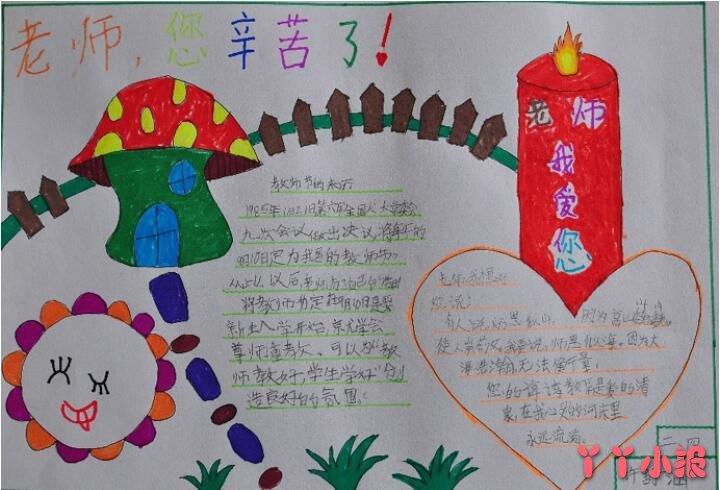 老师,您辛苦了!
老师
我
爱
您
教师节的来历
1985年1月21日第六届全国人大常委会
九次会议做出决议,将每年的
9月10日定为我国的教师节。
从此以后,老师有了自己的节日
将教师节定在9月10日是
新生入学开始,
尊师重教 可以为“教
师教好,学生学好”创
造良好的氛围。
老师,我想
您说:
有人说师恩如山,因为高山
使人 我说,师恩似海,因为大
海浩 无法 量。
您的谆谆教导是爱的清
泉,在我心 的河床里
永远流淌。
二四
丫丫小报